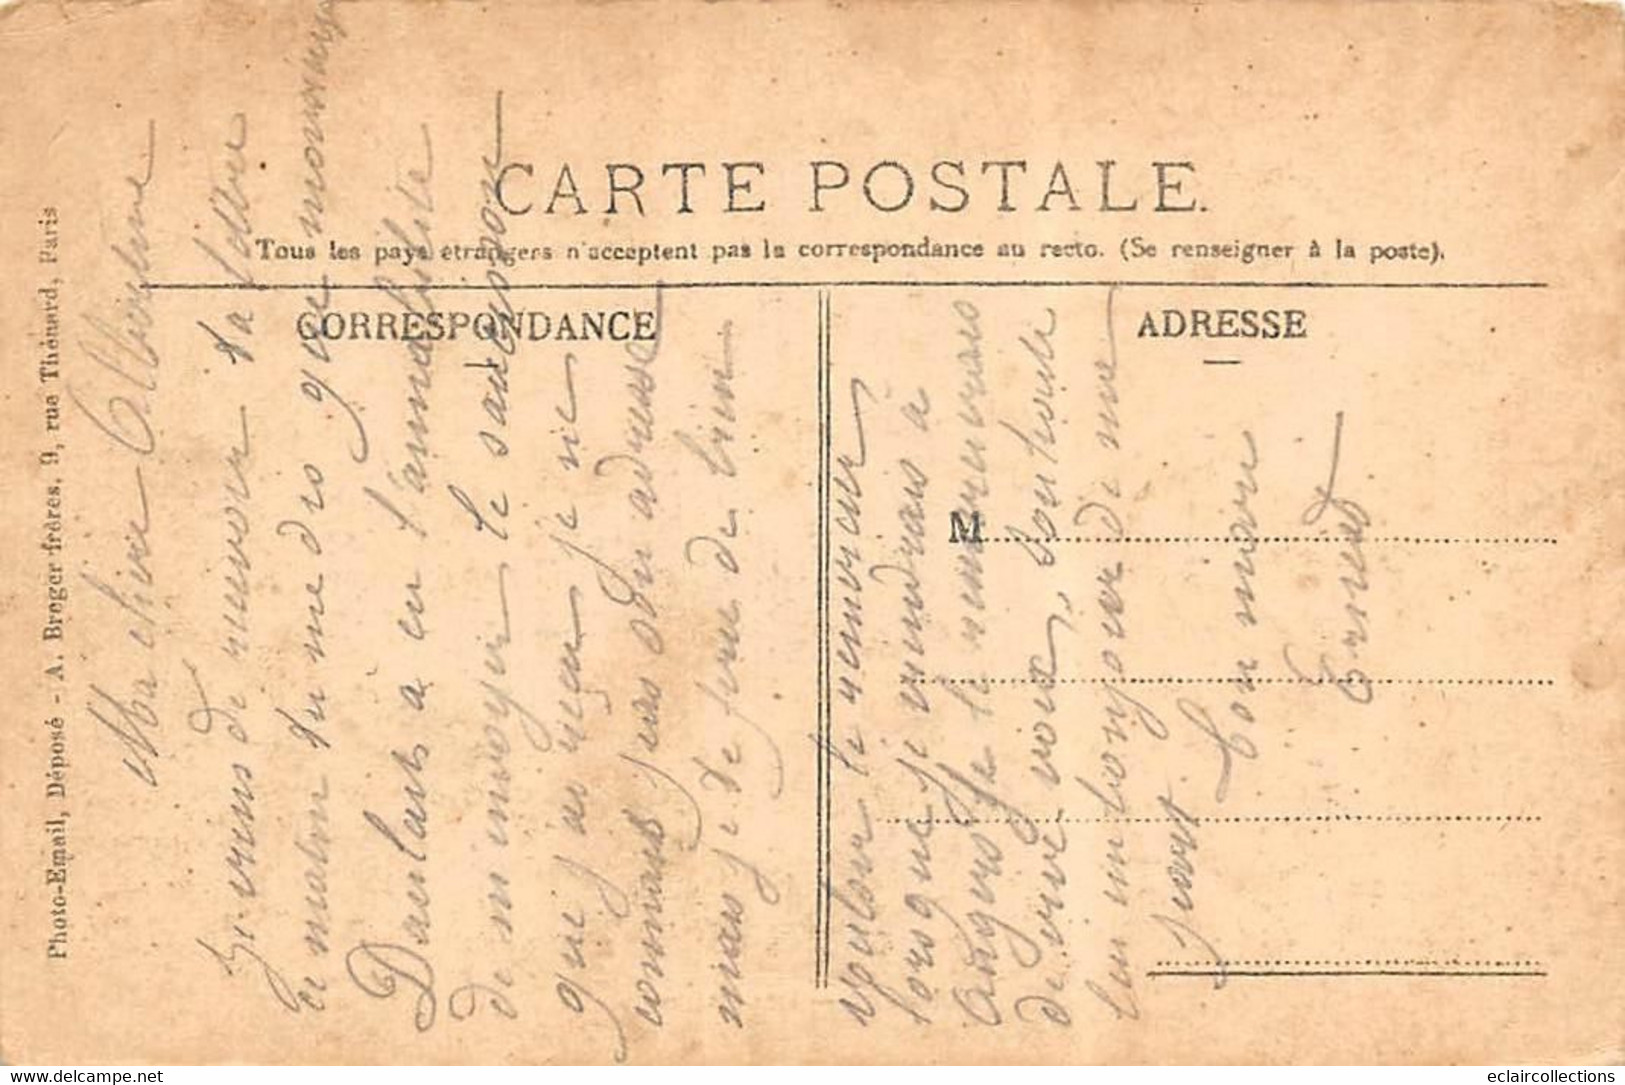 CARTE POSTALE.
Tous les pays étrangers n'acceptent pas la correspondance au recto. (Se renseigner à la poste).
CORRESPONDANCE
ADRESSE
M
Photo-Email, Déposé - A. Breger frères, 9, rue Thénard, Paris
Ma chère Albertine
Je viens de recevoir ta lettre
ce matin tu me dis que monsieur
a eu l'amabilité
de m'envoyer le
que j'ai reçu je ne
connais pas son adresse
mais je te prie de bien
vouloir le remercier
lorsque je viendrais à
Angers Je le remercierais
de vive voix, souhaite
lui un bonjour de ma
part
Ton mari
Ernest
eclaircollections
delcampe.net